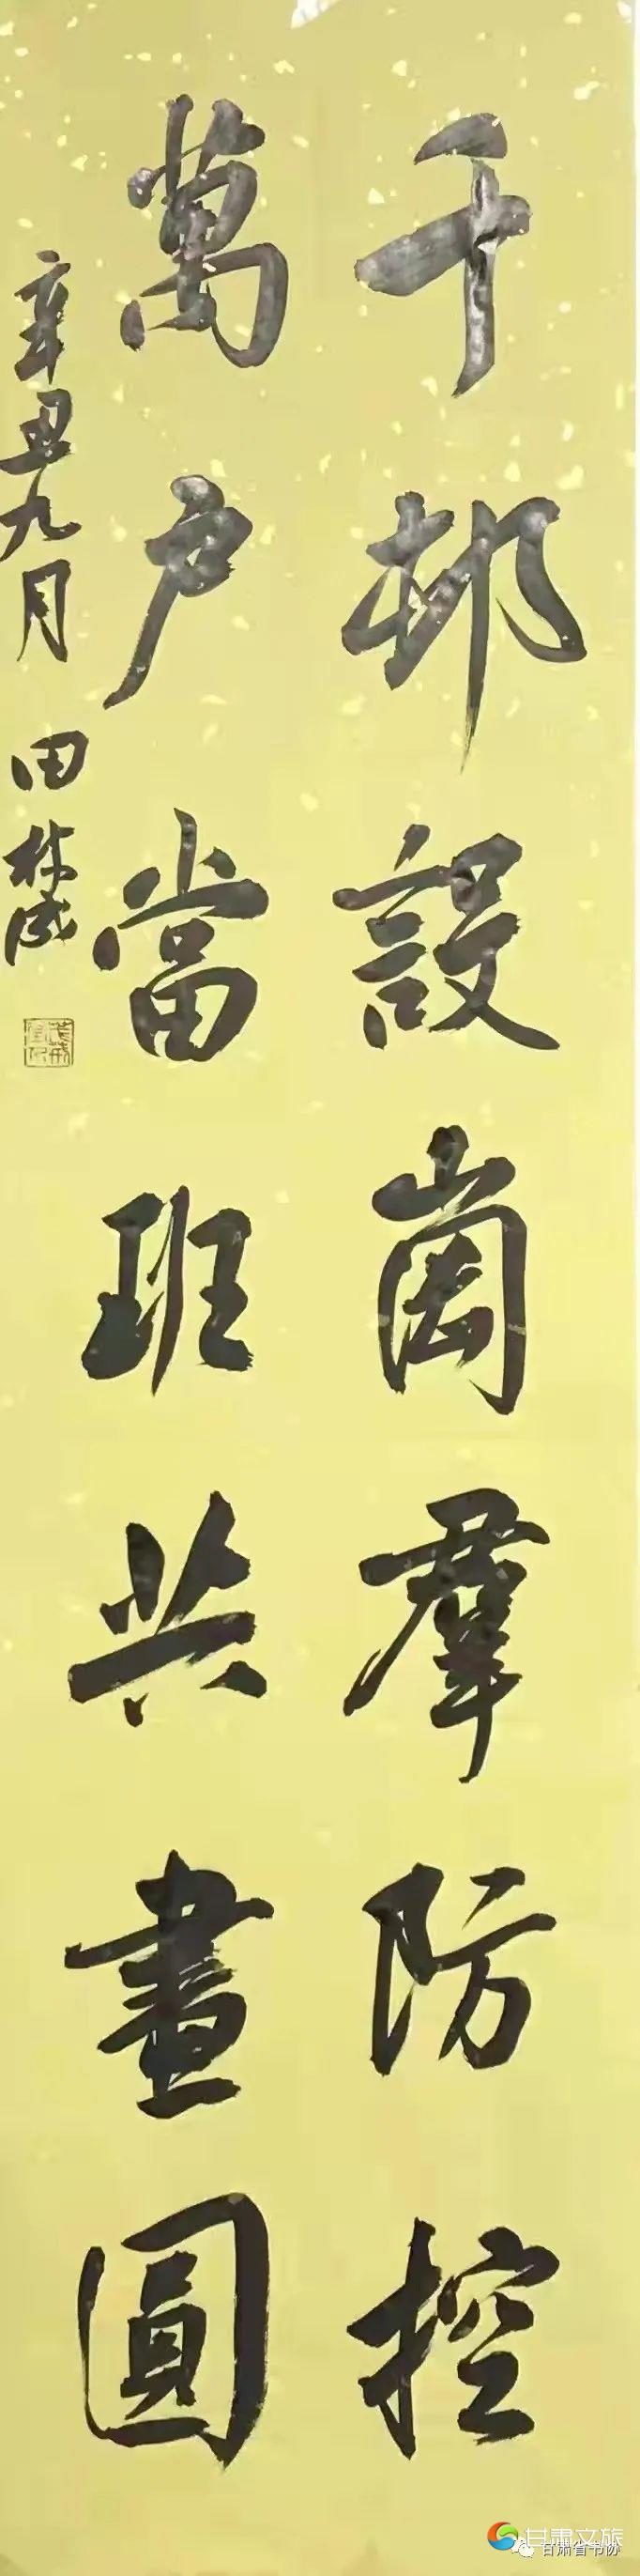 千邨設崗羣防控
萬户當班共畫圓
辛丑九月 田
甘肃文旅
甘肃省书协